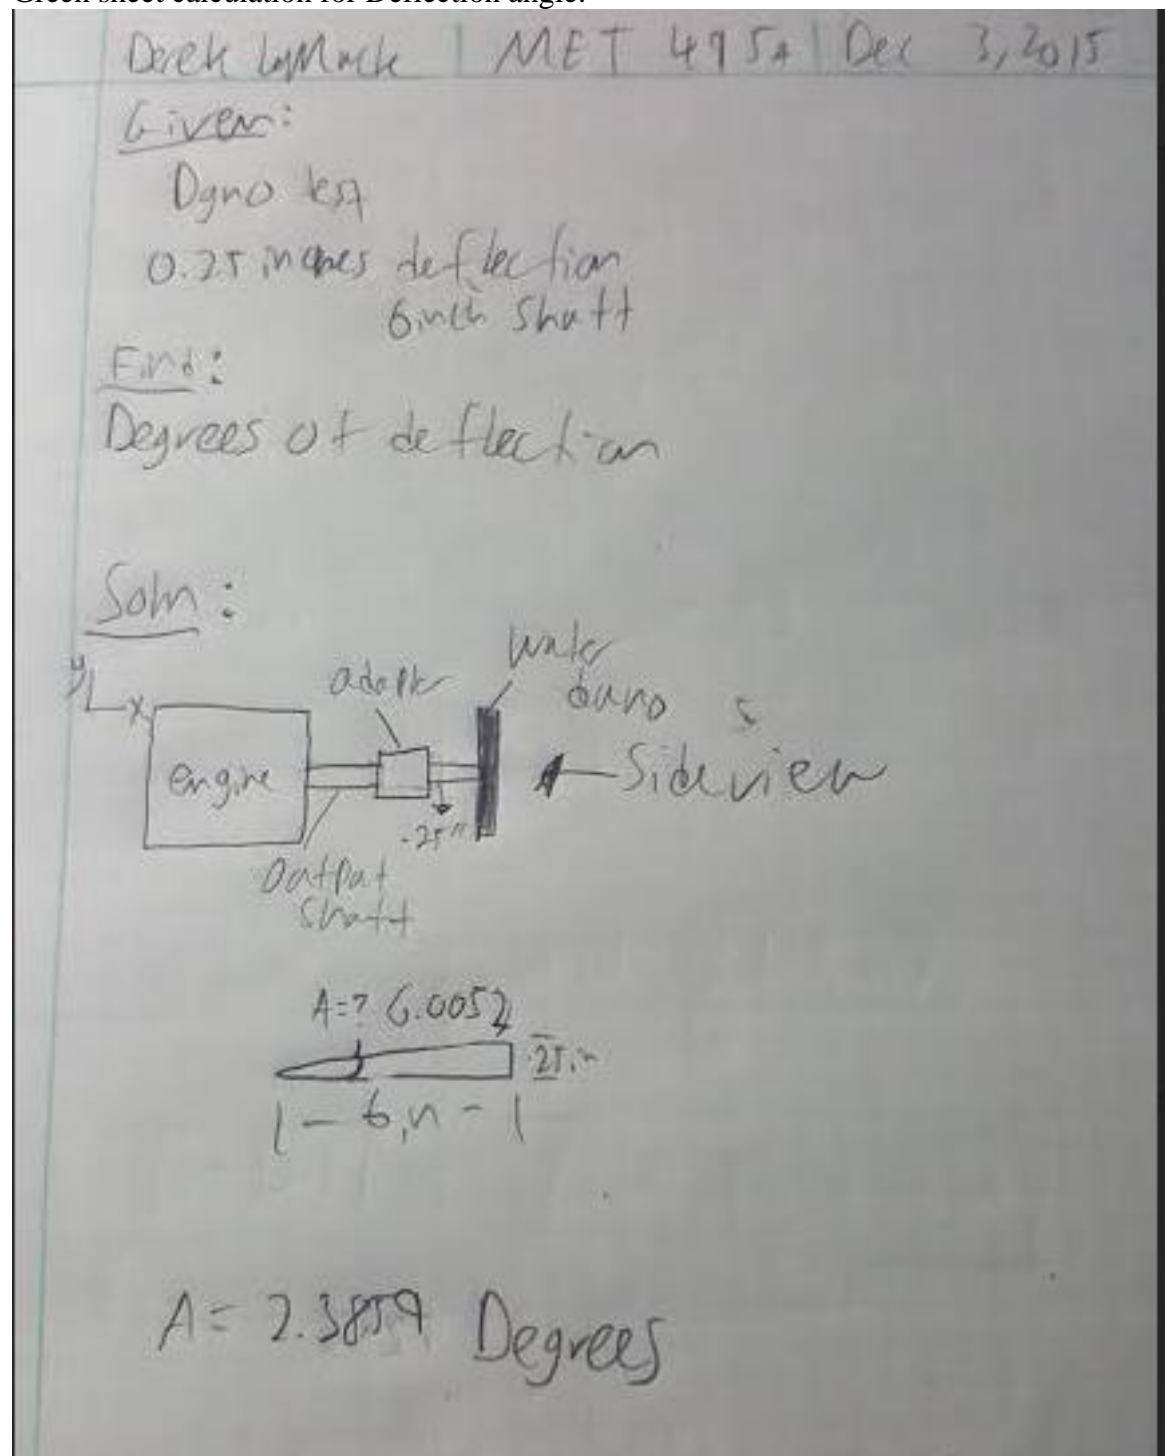 Green sheet calculation for Deflection angle:
Derek | MET 495A | Dec 3, 2015
Given:
Dyno test
0.25 inches deflection
6 inch shaft
Find:
Degrees of deflection
Soln:
y
x
engine
adapter
water
dyno
Side view
.25"
output
shaft
A=? 6.0052
.25 in
|- 6in -|
A= 2.3859 Degrees